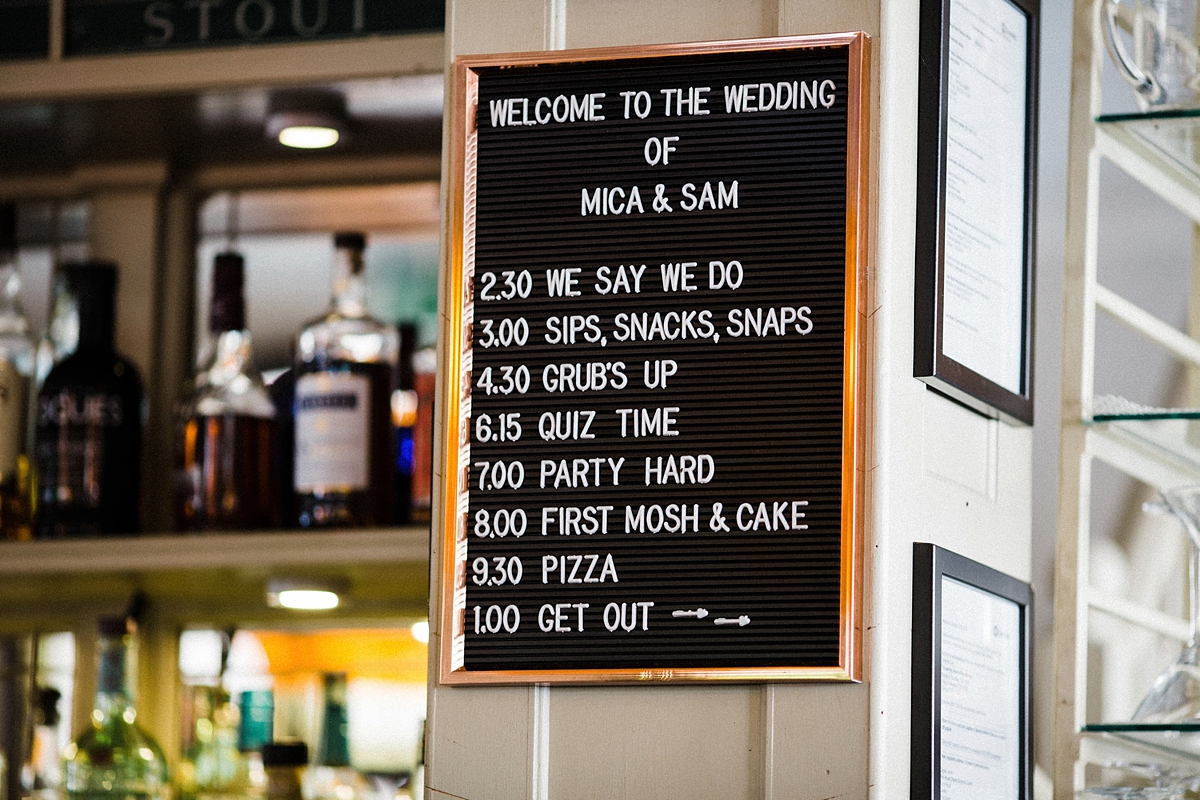 STOUT
WELCOME TO THE WEDDING
OF
MICA & SAM
2.30 WE SAY WE DO
3.00 SIPS, SNACKS, SNAPS
4.30 GRUB'S UP
6.15 QUIZ TIME
7.00 PARTY HARD
8.00 FIRST MOSH & CAKE
9.30 PIZZA
1.00 GET OUT